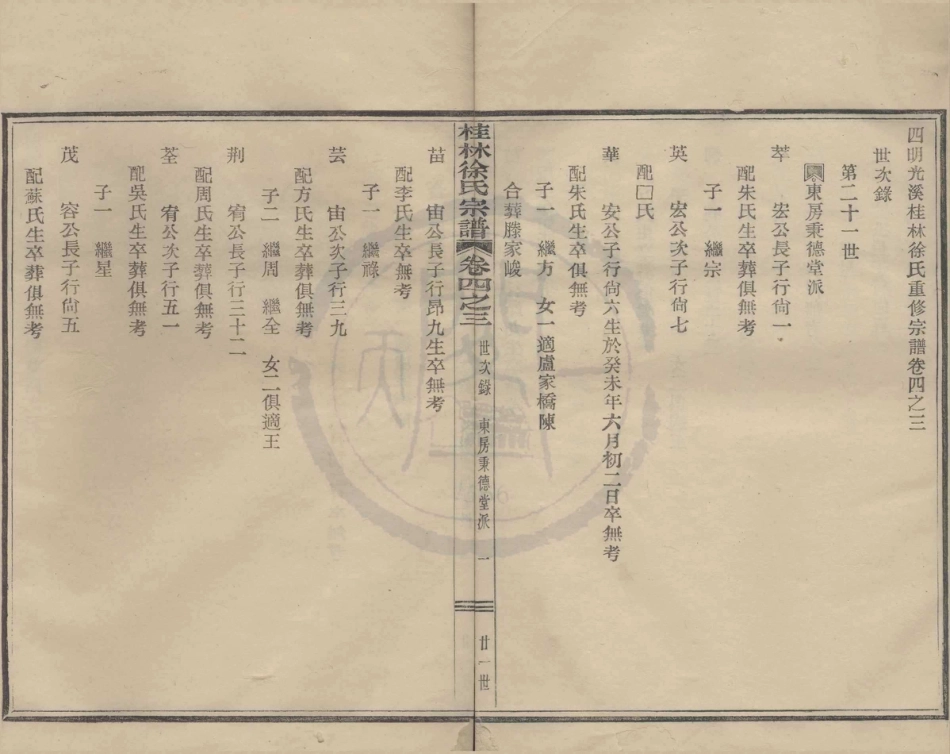 四明光溪桂林徐氏重修宗譜卷四之三
世次錄
第二十一世
東房秉德堂派
莘　宏公長子行尙一
配朱氏生卒葬俱無考
子一　繼宗
英　宏公次子行尙七
配□氏
華　安公子行尙六生於癸未年六月初二日卒無考
配朱氏生卒俱無考
子一　繼方　女一適盧家橋陳
合葬滕家峻
桂林徐氏宗譜　卷四之三　世次錄　東房秉德堂派　一　廿一世
苗　宙公長子行昂九生卒無考
配李氏生卒無考
子一　繼祿
芸　宙公次子行三九
配方氏生卒葬俱無考
子二　繼周　繼全　女二俱適王
荆　宥公長子行三十二
配周氏生卒葬俱無考
荃　宥公次子行五一
配吳氏生卒葬俱無考
子一　繼星
茂　容公長子行尙五
配蘇氏生卒葬俱無考